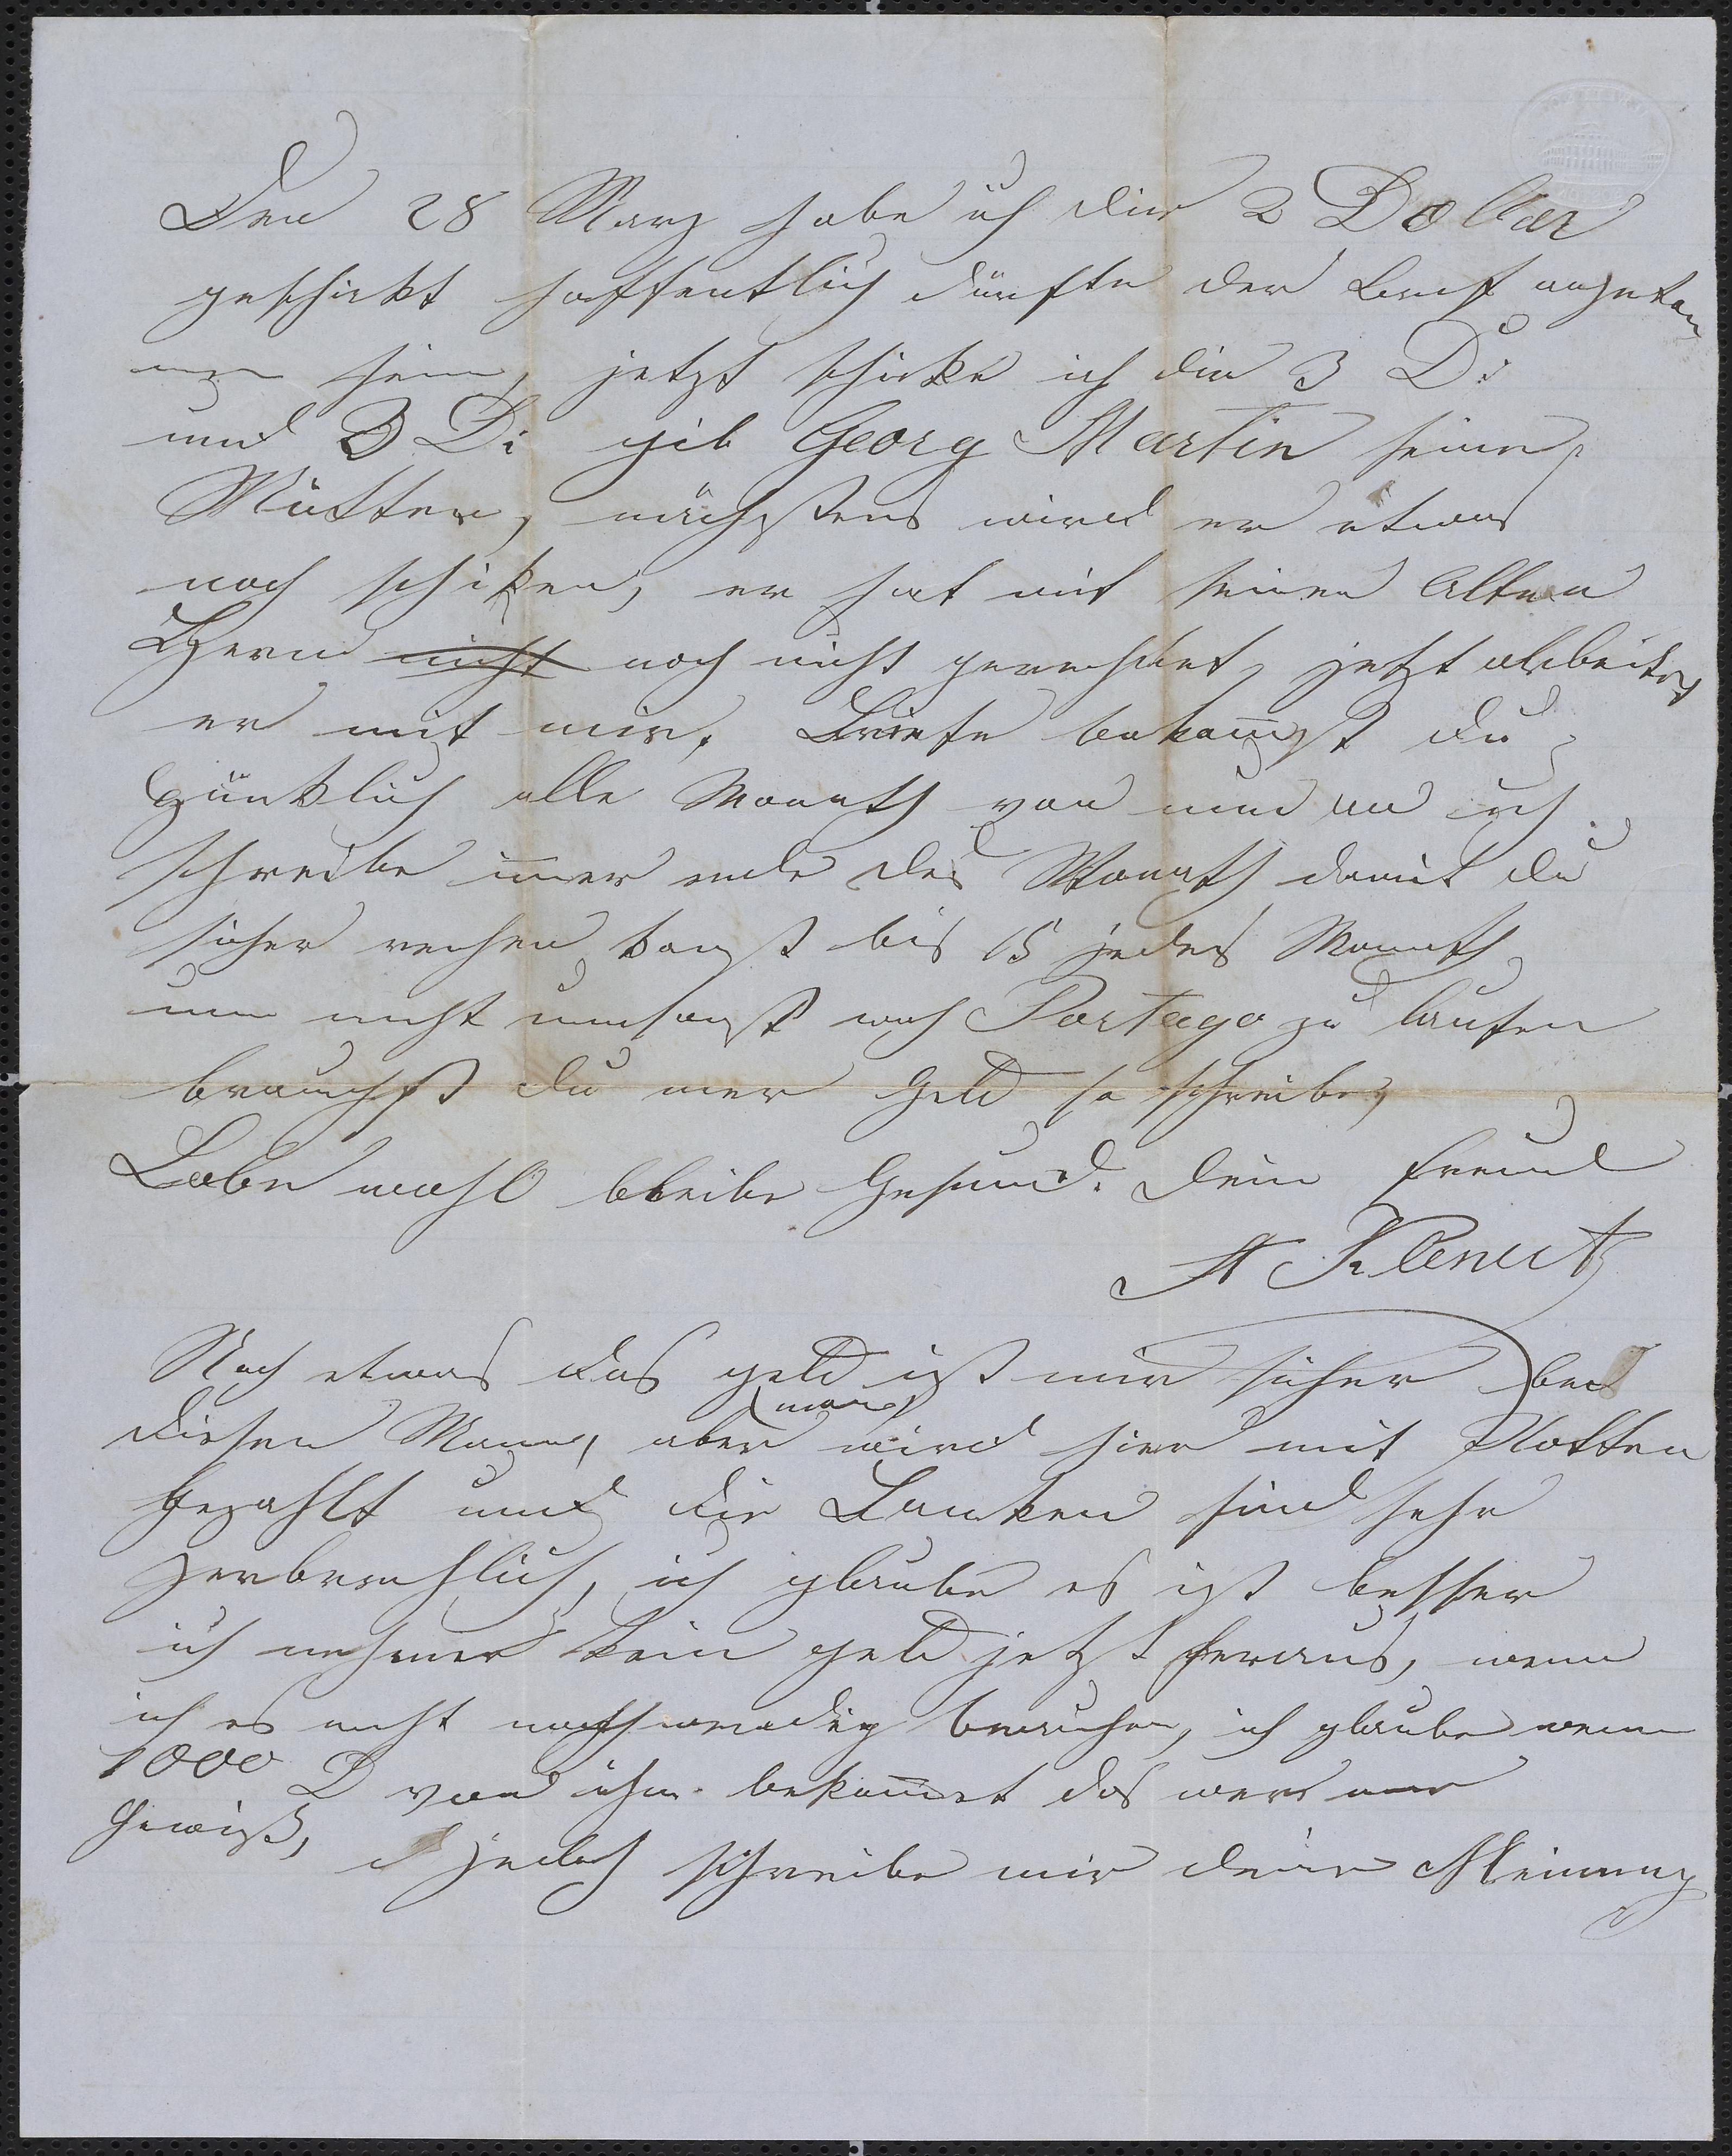 Den 28 Marz habe ich dir 2 Dollar
geschickt hoffentlich dürfte der Brief angekom
men sein, jetzt schicke ich dir 3 D:
und 3 D: gib Georg Martin seine
Mutter, nächstens wird er etwas
noch schiken, er hat mit seinen Alten
Hern nicht noch nicht gerechnet, jetzt arbeitet
er mit mir. Briefe bekomst du
pünktlich alle Monath von nun an ich
schreibe imer ende des Monath damit du
sicher rechen kanst bis 15 jedes Monath
um nicht umsonst nach Portago zu laufen
brauchst du mer Geld so schreibe,
Lebe wohl bleibe Gesund. Dein freund
A Klenert
Noch etwas das geld ist mir sicher bei
diesen Mann, aber man wird hier mit Notten
bezahlt und die Banken sind sehr
zerbrechlich, ich glaube es ist besser
ich nehme kein geld jetzt heraus, wenn
ich es nicht nothwendig brauche, ich glaube wenn
1000 D von ihm bekomet das wer
Gewiß, jedoch schreibe mir deine Meinung